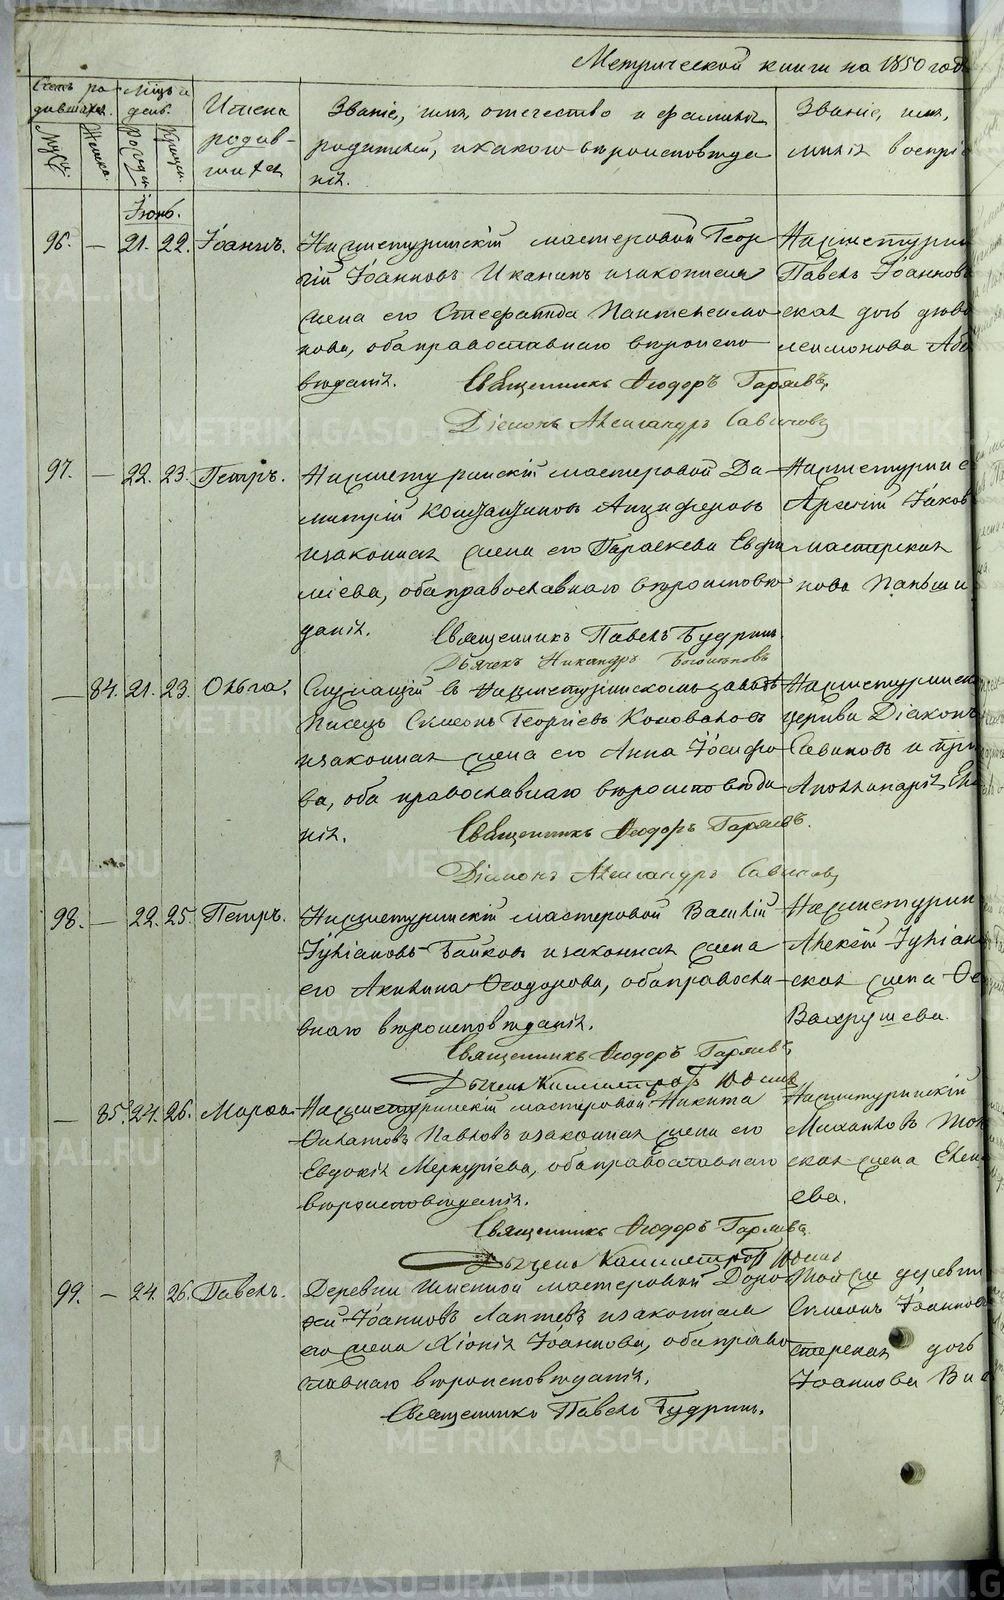 Метрической книги на 1850 годъ
Счетъ родившихся.
Муж.
Женска.
Мѣсяцъ и день.
Рожден.
Крещен.
Имена родившихся
Званіе, имя, отечество и фамилія
родителей, и какого вѣроисповѣда
нія.
Званіе, имя,
милія воспріе
Іюнь.
96. — 21. 22. Іоаннъ. Нижнетуринскій мастеровой Геор
гій Іоанновъ Иканинъ и законная
жена его Стефанида Пантелеимо
нова, оба православнаго вѣроиспо
вѣданія.
Священникъ Ѳеодоръ Гаряевъ.
Діаконъ Александръ Савиновъ
Нижнетурин
Павелъ Іоанновъ
ская дочь
леимонова
97. — 22. 23. Петръ. Нижнетуринскій мастеровой Ди
митрій Константиновъ Анциферовъ
и законная жена его Параскева Евфи
міева, оба православнаго вѣроисповѣ
данія.
Священникъ Павелъ Будринъ.
Дьячекъ Никандръ
Нижнетуринс
Арсеній Іаков
мастерская
нова Паньши
— 84. 21. 23. Ольга. Служащій въ Нижнетуринскомъ заводѣ
писецъ Симеонъ Георгіевъ Коновановъ
и законная жена его Анна Іосифо
ва, оба православнаго вѣроисповѣда
нія.
Священникъ Ѳеодоръ Гаряевъ.
Діаконъ Александръ Савиновъ
Нижнетуринск
церкви Діаконъ
Савиновъ и
Аполлинарія
98. — 22. 25. Петръ. Нижнетуринскій мастеровой Василій
Іуліановъ Байковъ и законная жена
его Акилина Ѳеодорова, оба правосла
внаго вѣроисповѣданія.
Священникъ Ѳеодоръ Гаряевъ
Дьячекъ
Нижнетурин
Алексѣй Іуліан
ская жена
Вахрушева.
— 85. 24. 26. Марѳа. Нижнетуринскій мастеровой Никита
Филатовъ Павловъ и законная жена его
Евдокія Меркуріева, оба православнаго
вѣроисповѣданія.
Священникъ Ѳеодоръ Гаряевъ
Дьячекъ
Нижнетуринскій
Михаиловъ
ская жена Елен
ева.
99. — 24. 26. Павелъ. Деревни Именной мастеровой Доро
ѳей Іоанновъ Лаптевъ и законная
его жена Хіонія Іоаннова, оба право
славнаго вѣроисповѣданія.
Священникъ Павелъ Будринъ.
Той же деревни
Симеонъ Іоаннов
стерская дочь
Іоаннова
METRIKI.GASO-URAL.RU